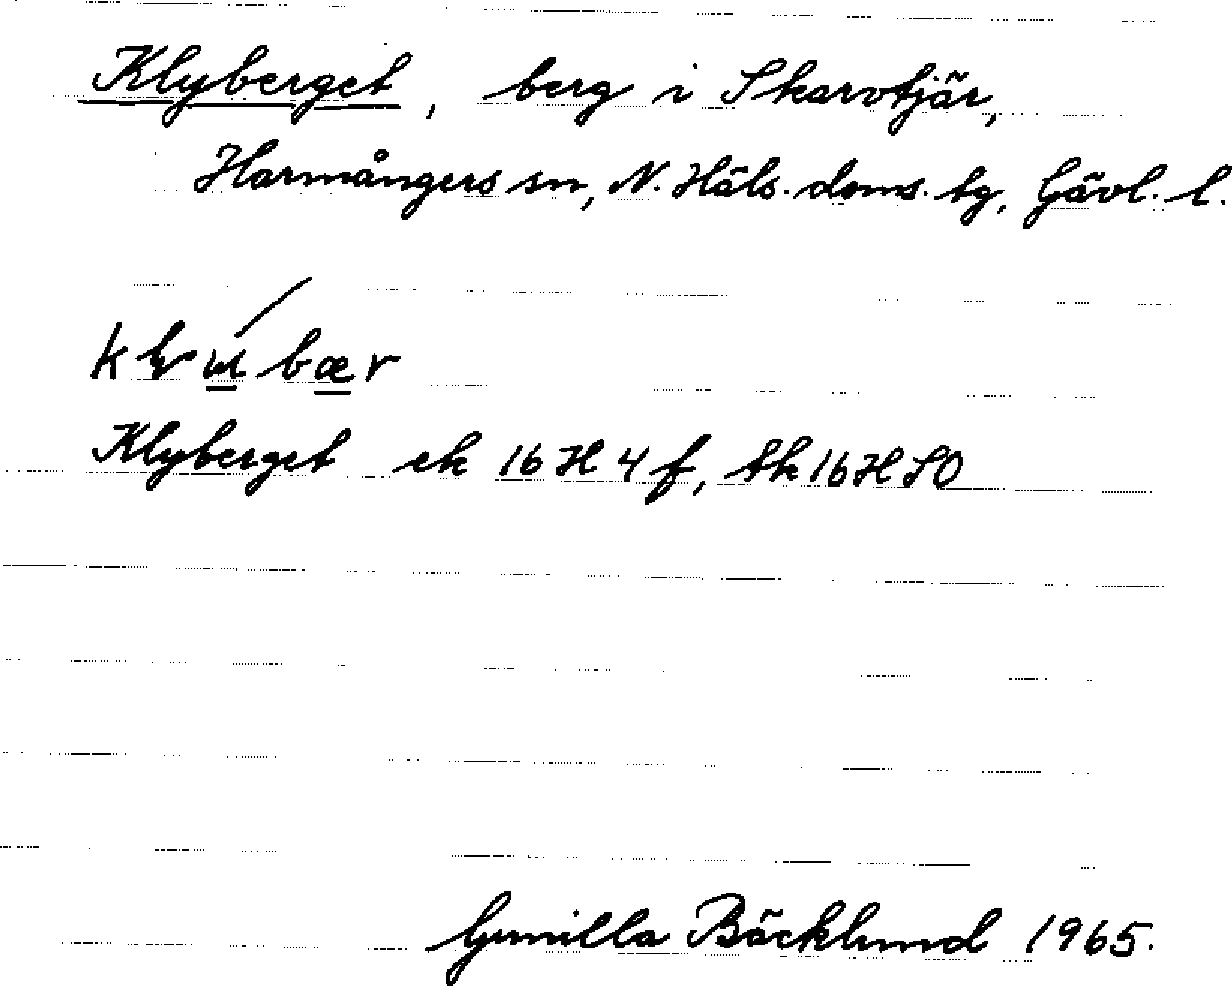 Klyberget, berg i Skarvtjär,
Harmångers sn, N. Häls. doms. tg, Gävl. l.
Klyberget ek 16 H 4 f, tk 16 H SO
Gunilla Bäcklund 1965.